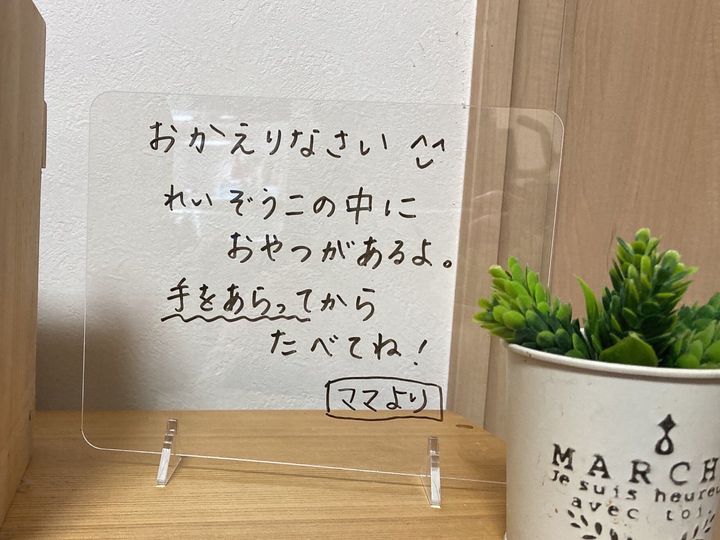 おかえりなさい ^^
れいぞうこの中に
おやつがあるよ。
手をあらってから
たべてね!
ママより
MARCH
Je suis heureu
avec toi.